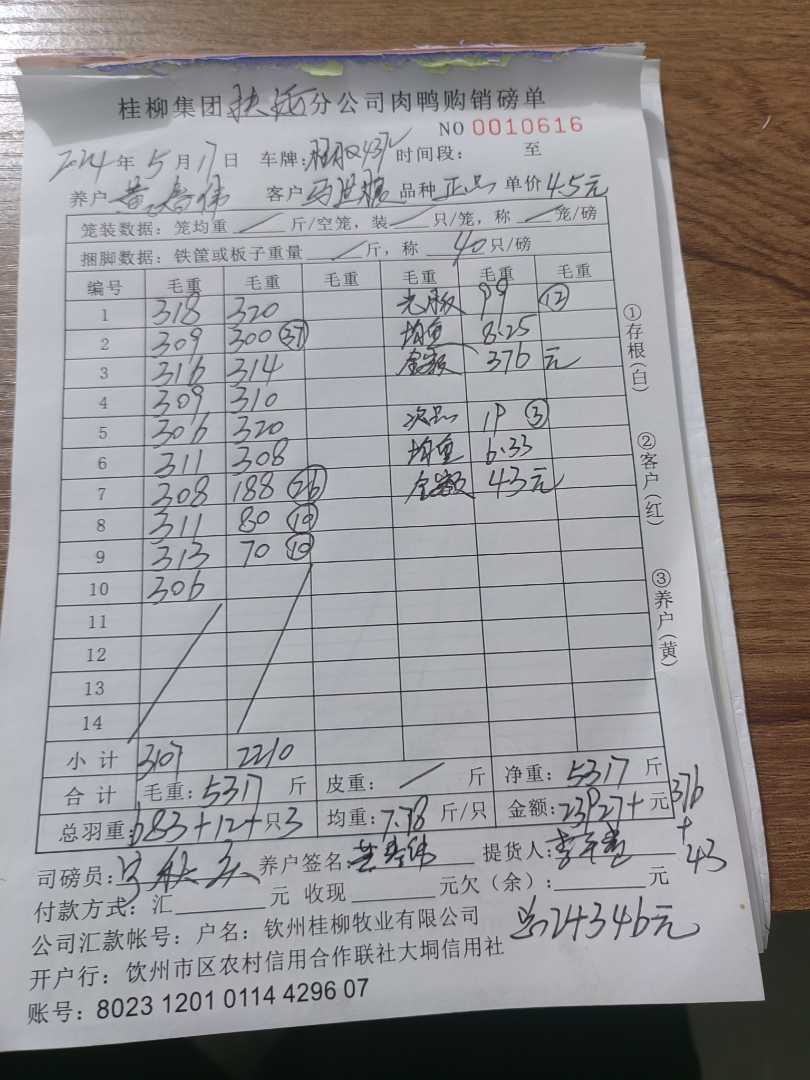 桂柳集团扶绥分公司肉鸭购销磅单
NO 0010616
2024年5月17日 车牌: 时间段: 至
养户 黄 伟 客户 品种 正品 单价 4.5元
笼装数据: 笼均重 / 斤/空笼, 装 / 只/笼, 称 / 笼/磅
捆脚数据: 铁筐或板子重量 / 斤, 称 40 只/磅
编号 毛重 毛重 毛重 毛重 毛重 毛重
1 318 320 99 ⑫
2 309 300 ㊲ 均重 8.25
3 316 314 金额 376 元
4 309 310
5 306 320 次品 19 ③
6 311 308 均重 6.33
7 308 188 ㉖ 金额 43元
8 311 80 ⑩
9 313 70 ⑩
10 306
11
12
13
14
小计 3107 2210
合计 毛重: 5317 斤 皮重: / 斤 净重: 5317 斤
总羽重: 683+12+只3 均重: 7.78 斤/只 金额: 23927+ 元 376
+
43
司磅员: 养户签名: 提货人:
付款方式: 汇 元 收现 元欠(余): 元
公司汇款帐号: 户名: 钦州桂柳牧业有限公司
总24346元
开户行: 饮州市区农村信用合作联社大垌信用社
账号: 8023 1201 0114 4296 07
①存根(白)
②客户(红)
③养户(黄)